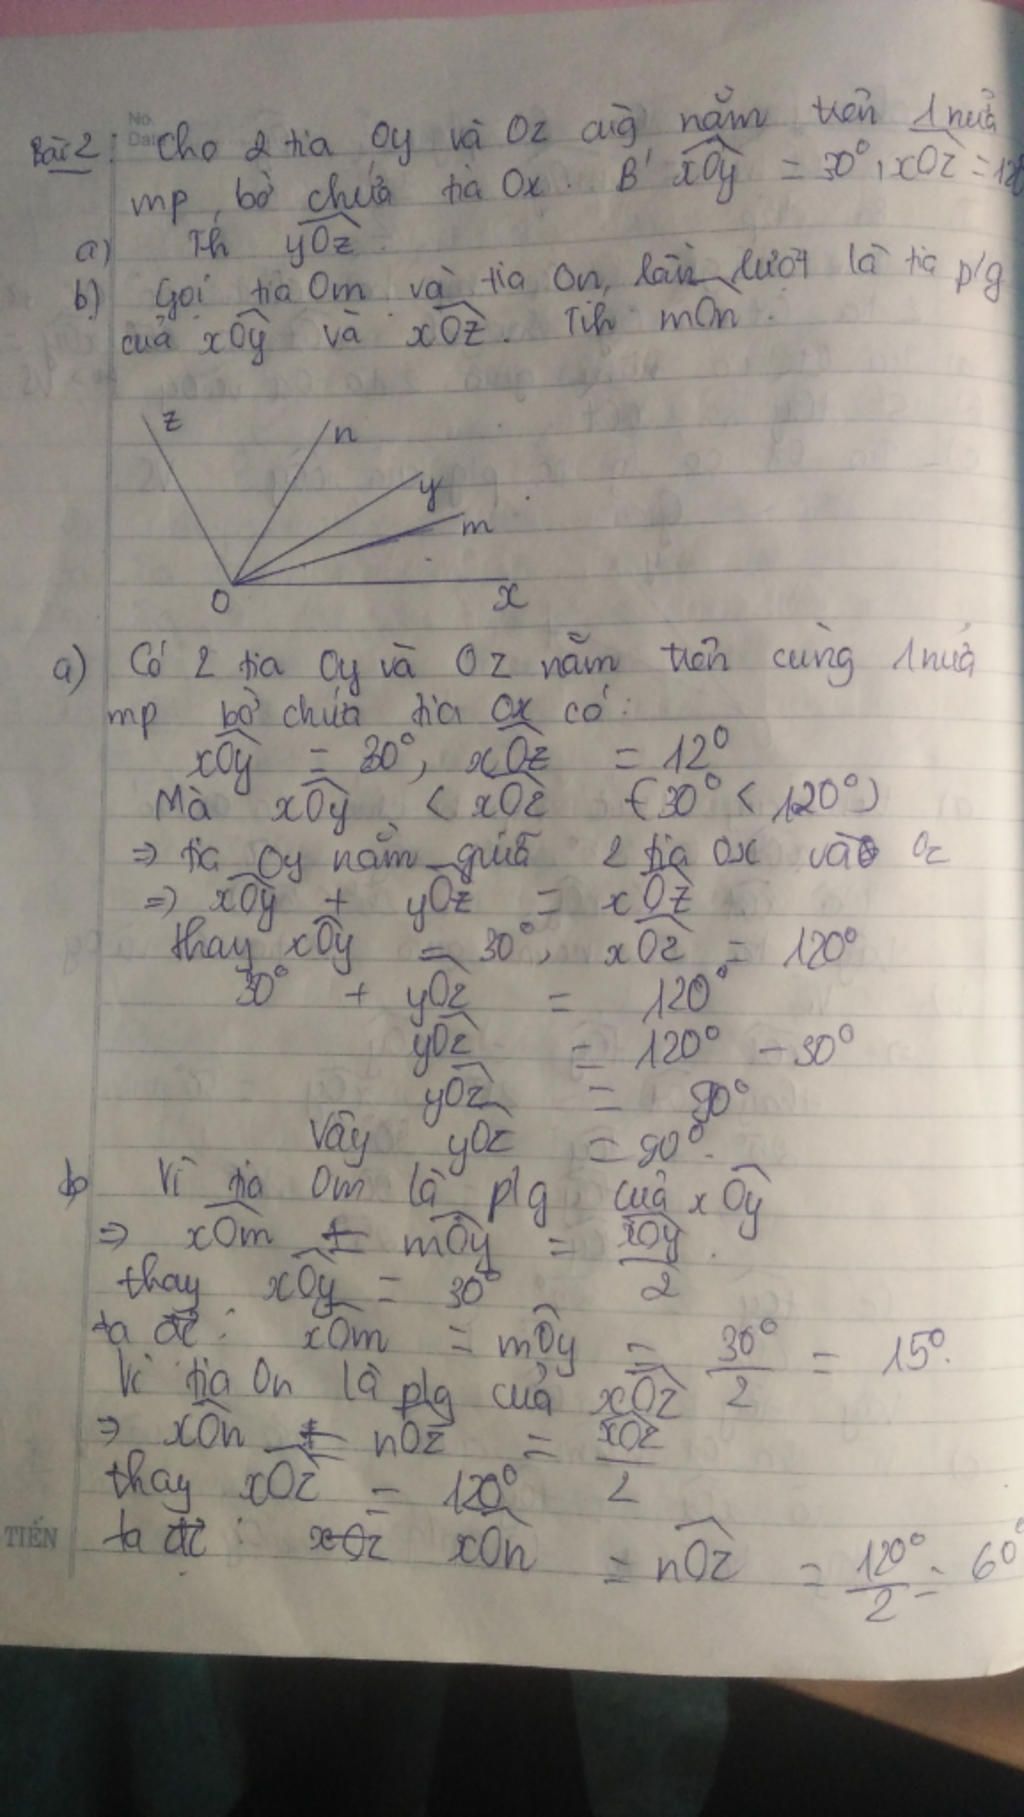 No.
Date
Bài 2: Cho 2 tia Oy và Oz cùg nằm trên 1 nửa
mp, bờ chứa tia Ox. B' xOy = 30°, xOz = 120
a) Th yOz.
b) Gọi tia Om và tia On, lần lượt là tia p/g
của xOy và xOz. Tíh mOn.
z
n
y
m
O
x
a) Có 2 tia Oy và Oz nằm trên cùng 1 nửa
mp bờ chứa tia Ox có:
xOy = 30°, xOz = 12°
Mà xOy < xOz (30° < 120°)
⇒ tia Oy nằm giữa 2 tia Ox và Oz
⇒ xOy + yOz = xOz
thay xOy = 30°, xOz = 120°
30° + yOz = 120°
yOz = 120° - 30°
yOz = 90°
Vậy yOz = 90°.
b) Vì tia Om là p/g của xOy
⇒ xOm = mOy = xOy/2.
thay xOy = 30°
ta đc: xOm = mOy = 30°/2 = 15°.
Vì tia On là p/g của xOz
⇒ xOn = nOz = xOz/2
thay xOz = 120°
ta đc: xOz xOn = nOz = 120°/2 = 60°
TIẾN